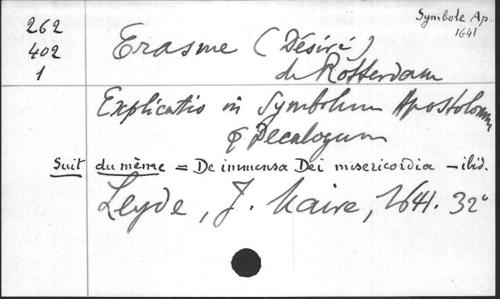 Symbole Ap.
1641
262
402
1
Erasme (Désiré)
de Rotterdam
Explicatio in Symbolum Apostolorum
& Decalogum
Suit du même = De immensa Dei misericordia - ibid.
Leyde, J. Maire, 1641. 32°